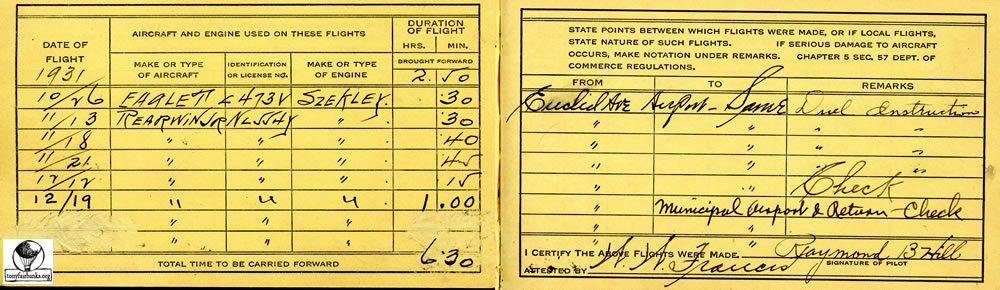 DATE OF FLIGHT
1931
AIRCRAFT AND ENGINE USED ON THESE FLIGHTS
DURATION OF FLIGHT
MAKE OR TYPE OF AIRCRAFT
IDENTIFICATION OR LICENSE NO.
MAKE OR TYPE OF ENGINE
HRS. MIN.
BROUGHT FORWARD
2 50
10/26 EAGLETT <473V SZEKLEY. .30
11/13 REARWIN JR " .30
11/18 " " " 40
11/21 " " " 45
12/12 " " " 15
12/19 " " " 1.00
" " "
" " "
TOTAL TIME TO BE CARRIED FORWARD
6 30
tonyfairbanks.org
STATE POINTS BETWEEN WHICH FLIGHTS WERE MADE, OR IF LOCAL FLIGHTS,
STATE NATURE OF SUCH FLIGHTS. IF SERIOUS DAMAGE TO AIRCRAFT
OCCURS, MAKE NOTATION UNDER REMARKS. CHAPTER 5 SEC. 57 DEPT. OF
COMMERCE REGULATIONS.
FROM TO REMARKS
Euclid Ave Airport - Same Duel Instruction
" " " "
" " " "
" " " "
" " Check
" Municipal Airport & Return - Check
" "
" "
I CERTIFY THE ABOVE FLIGHTS WERE MADE. Raymond B Hill
SIGNATURE OF PILOT
ATTESTED BY N. N. Francis